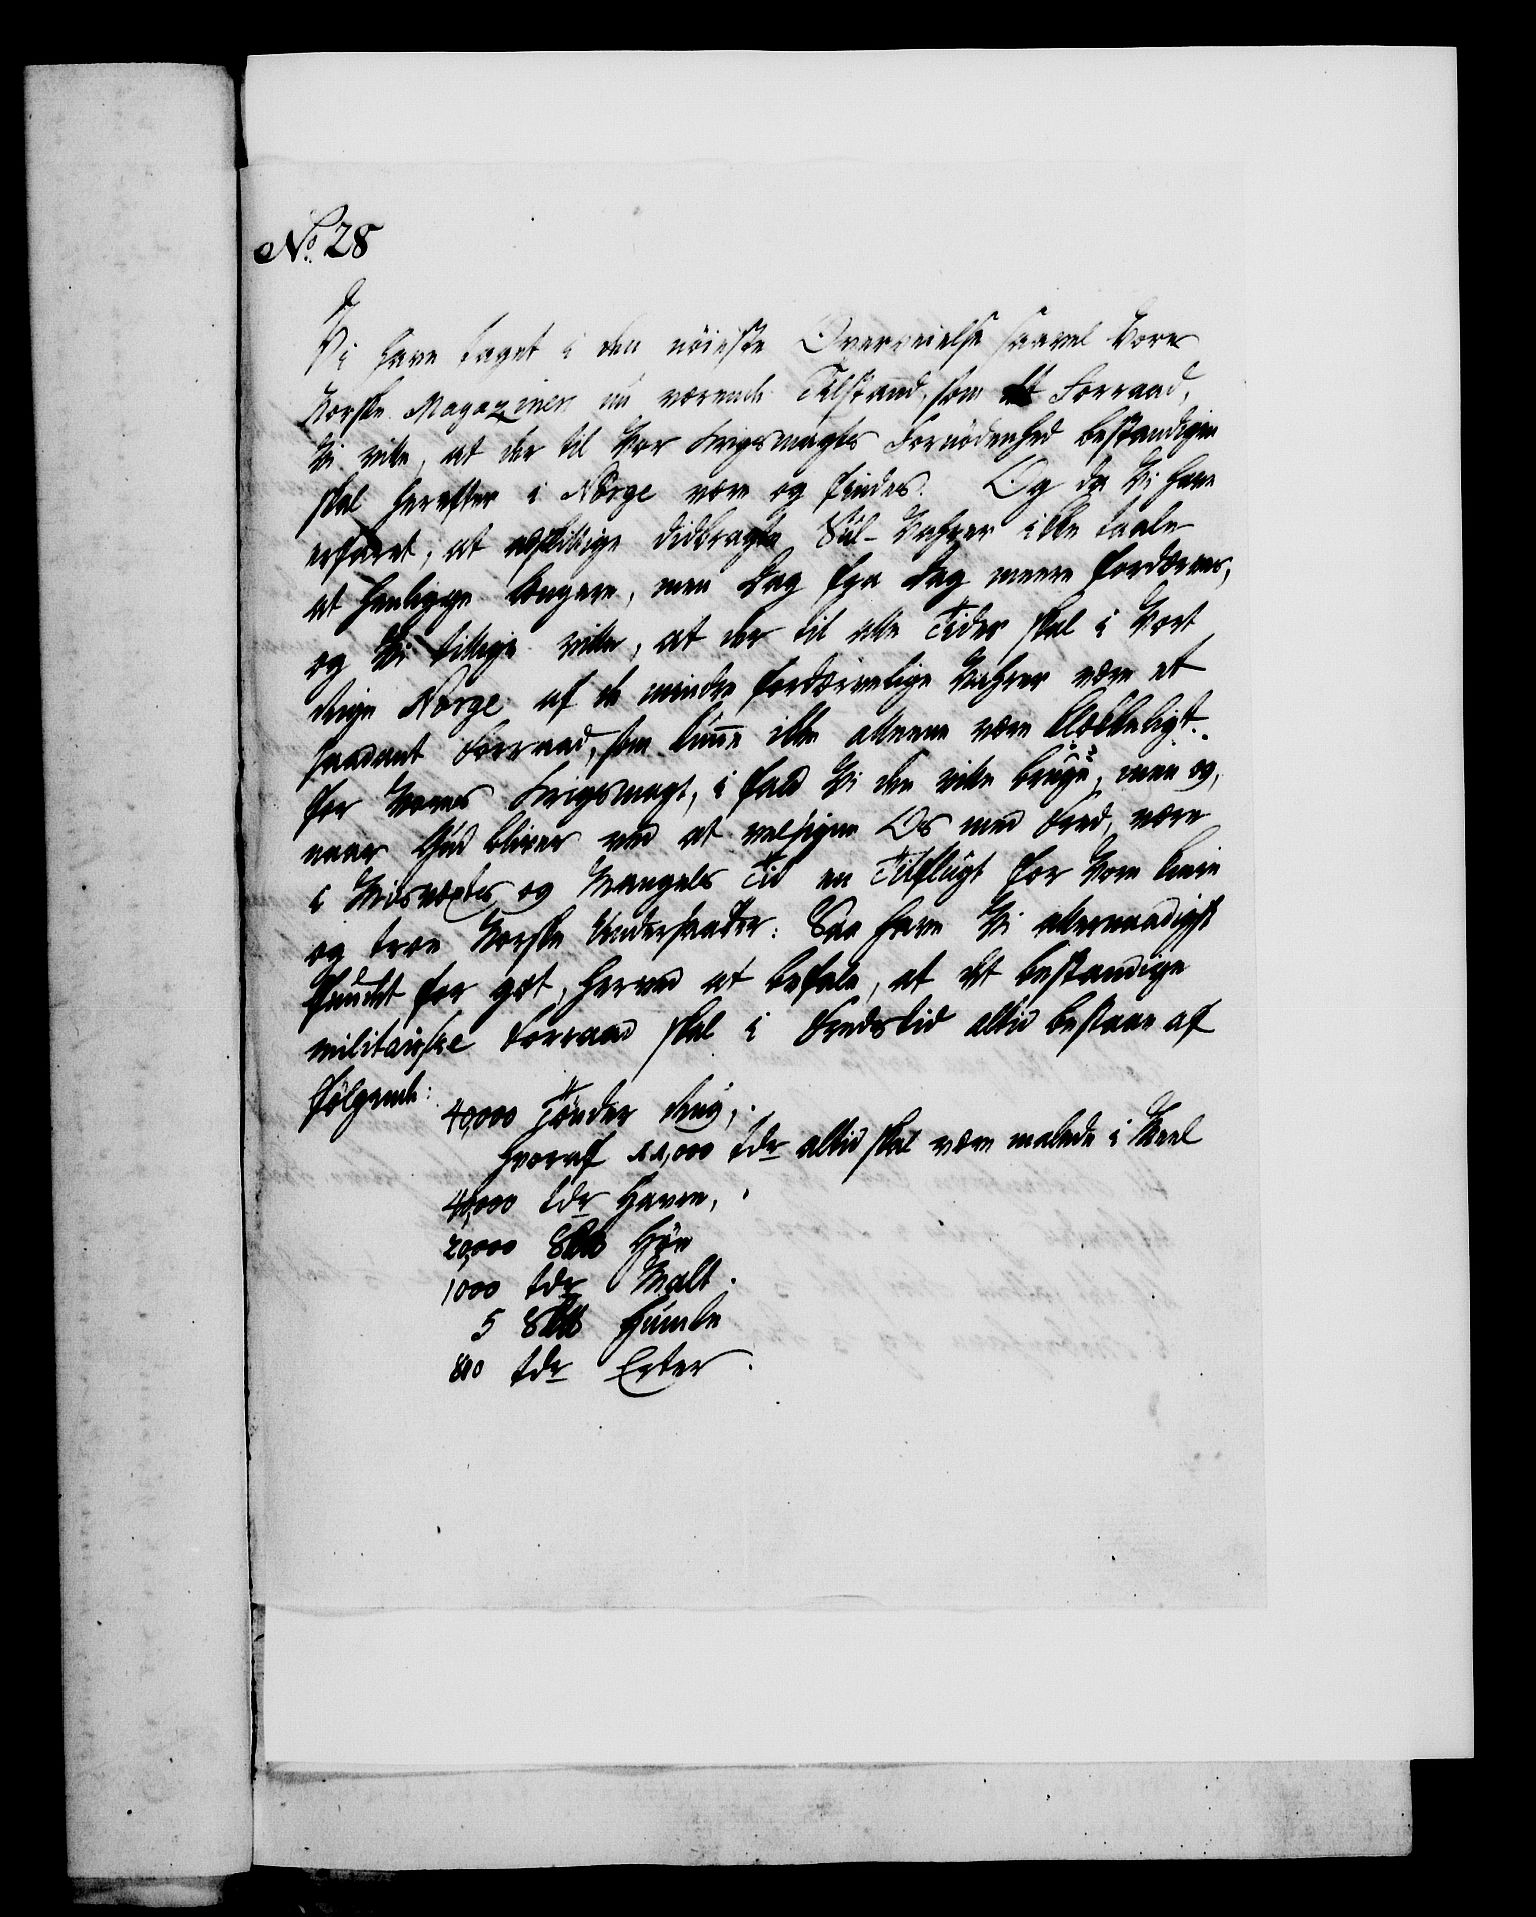 No. 28
Vi have taget i den nöieste Overveielse saavel Vore
Norske Magaziners nu værende Tilstand, som det Forraad,
Vi ville, at der til Vor Krigsmagts Fornödenhed bestandigen
skal herefter i Norge være og findes. Og da Vi have
erfaret, at adskillige didbragte Vahrer ikke taale
at henligge længere, men Dag fra Dag meere fordærves,
og Vi tillige ville, at der til alle Tider skal i Vort
Rige Norge af de mindre fordærvelige Vahrer være et
saadant Forraad, som kunne ikke alleene være tilstrækkeligt
for Vores Krigsmagt, i fald Vi den ville bruge, men og,
naar Gud bliver ved at velsigne Os med Fred, være
i Misvæxtes og Mangels Tid en Tilflugt for Vore kiere
og troe Norske Undersaatter: Saa have Vi allernaadigst
fundet for got, herved at befale, at det bestandige
militairske Forraad skal i Fredstid altid bestaae af
følgende:
40,000 Tönder Rug,
hvoraf 11,000 Tdr altid skal være malede i Meel
40,000 Tdr Havre,
20,000 Höe
1000 Tdr Malt.
5 Humle
800 Tdr Erter.